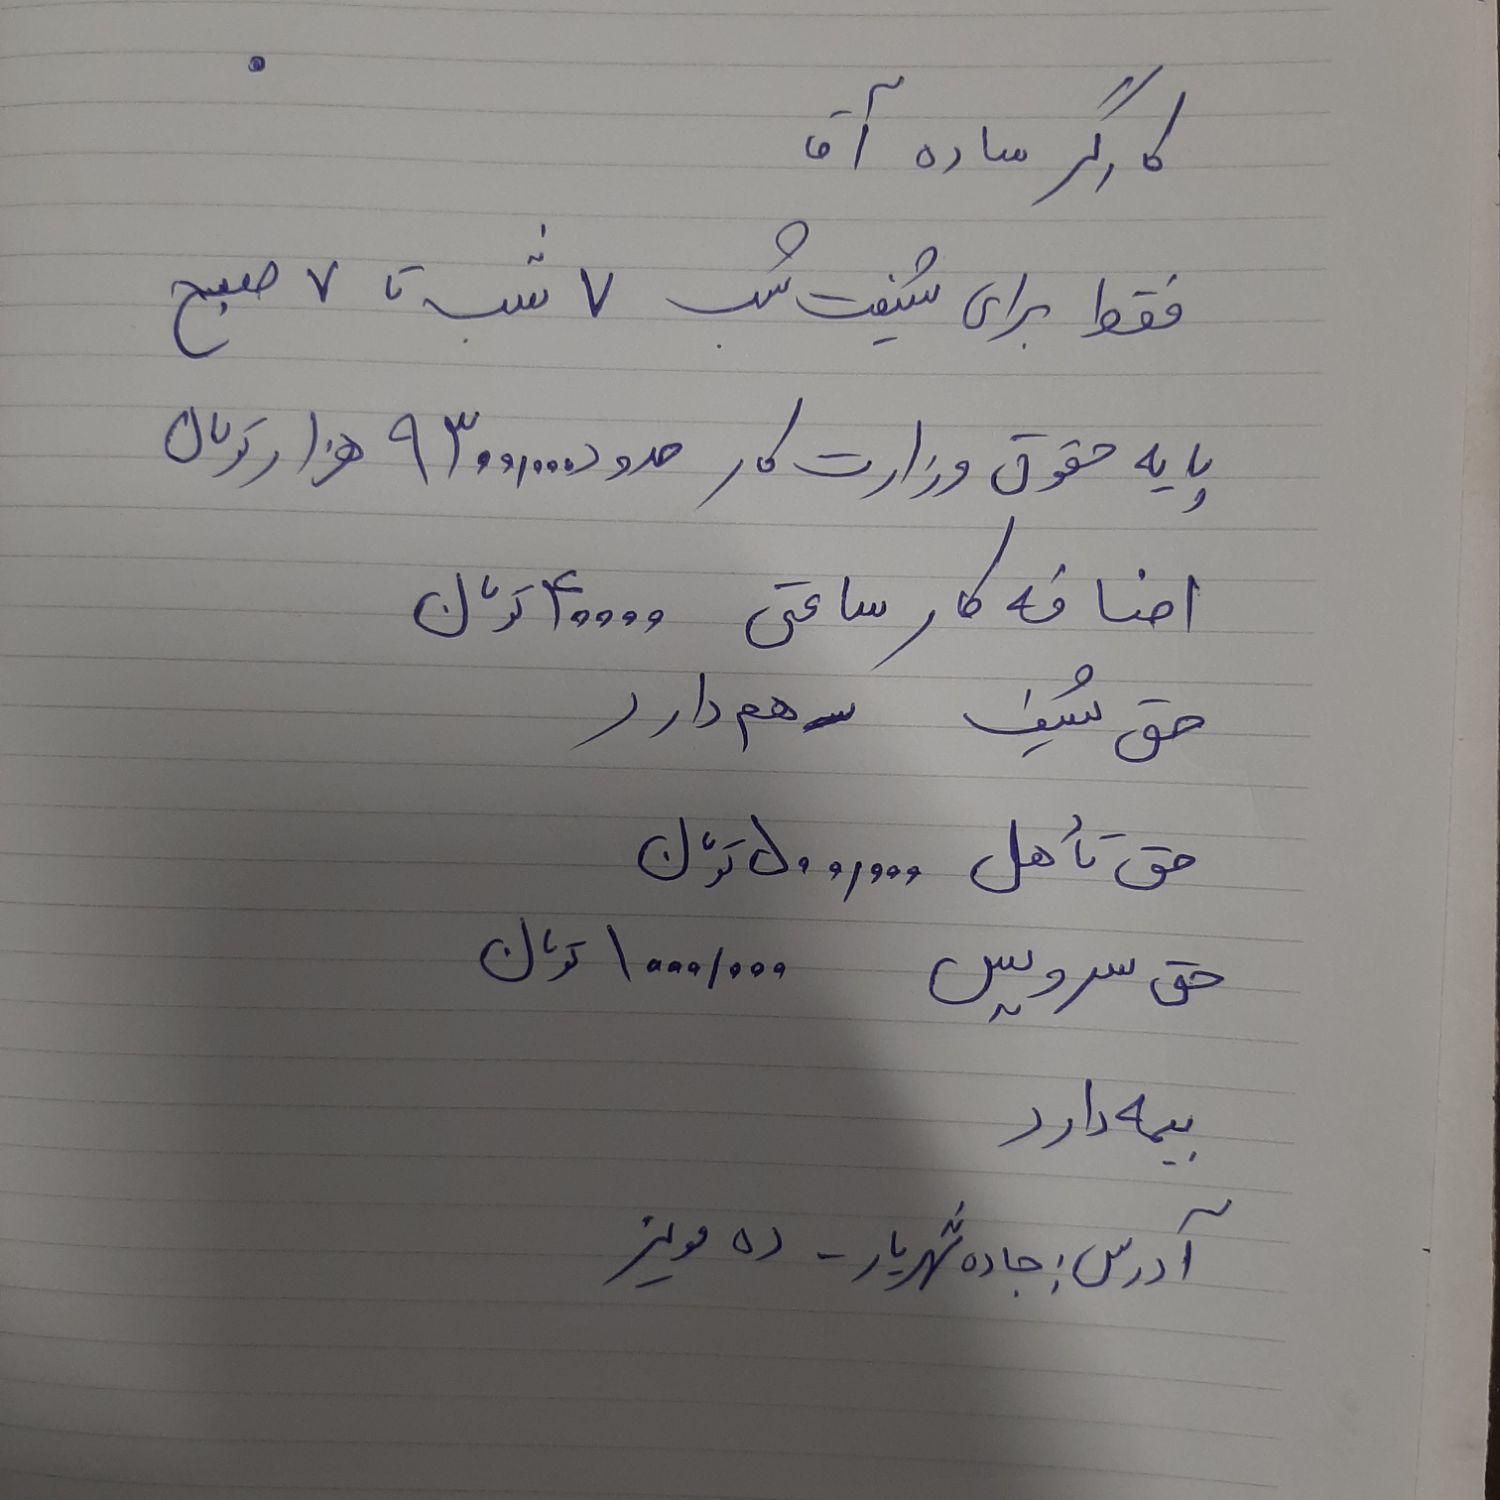 کارگر ساده آقا
فقط برای شیفت شب ۷ شب تا ۷ صبح
پایه حقوق وزارت کار حدود ۹۳۰۰,۰۰۰ هزار تومان
اضافه کار ساعتی ۴۰۰۰۰ تومان
حق شیف هم دارد
حق تأهل ۵۰۰,۰۰۰ تومان
حق سرویس ۱۰۰۰/۰۰۰ تومان
بیمه دارد
آدرس: جاده شهریار - ده مویز